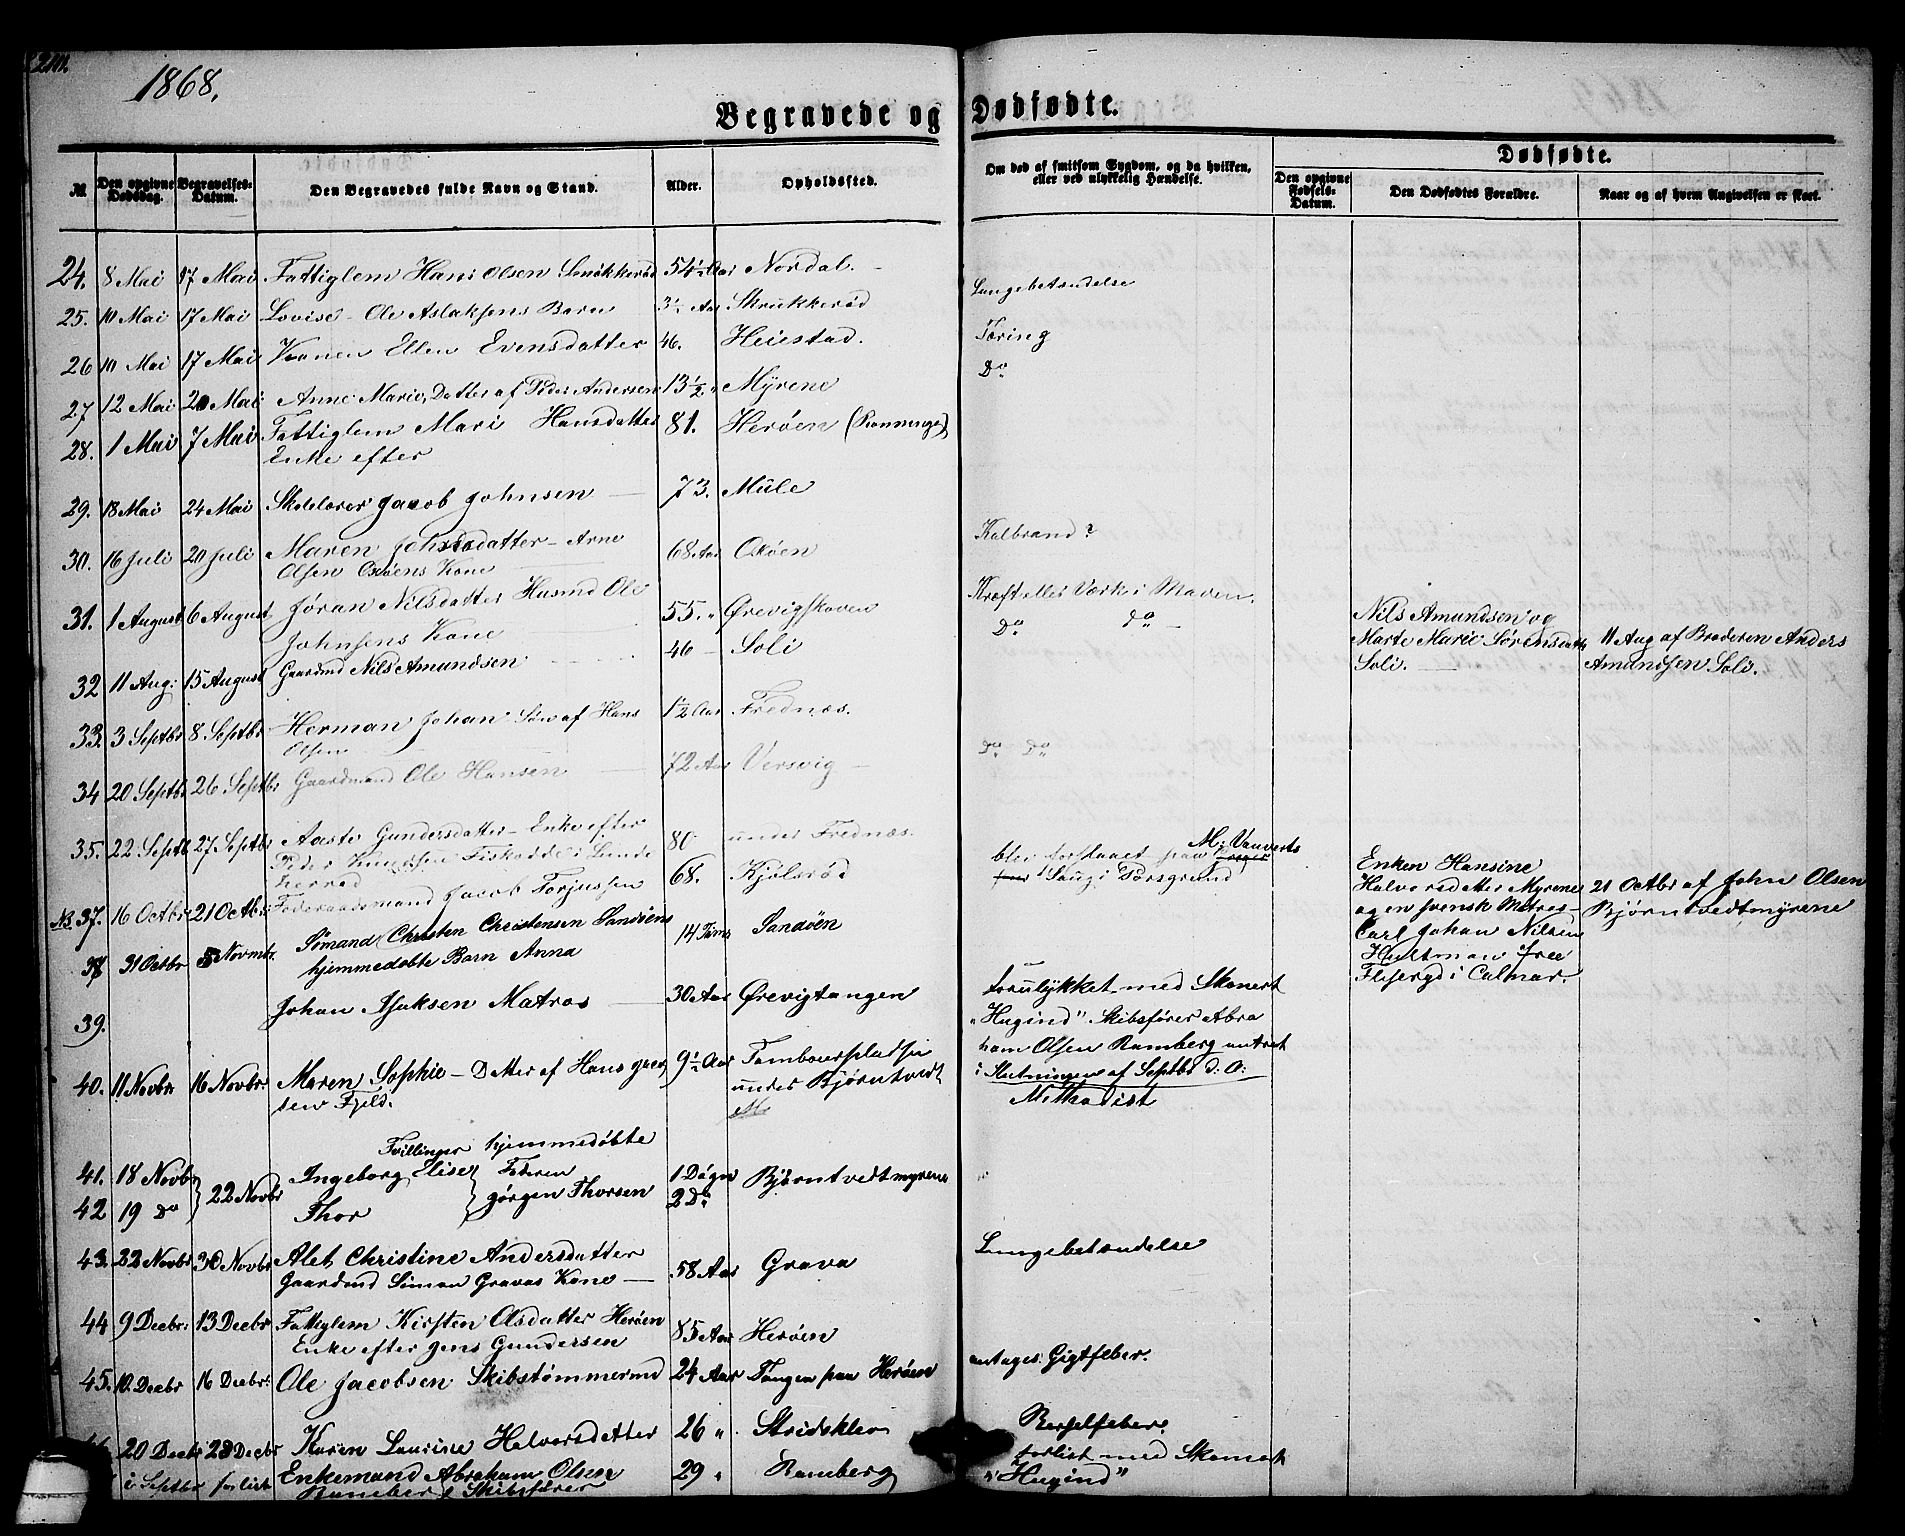 1868.
Begravede og Dødfødte.
№
Den opgivne Dødsdag.
Begravelses-Datum.
Den Begravedes fulde Navn og Stand.
Alder.
Opholdssted.
Om død af smitsom Sygdom, og da hvilken,
eller ved ulykkelig Hændelse.
Dødfødte.
Den opgivne Fødsels-Datum.
Den Dødfødtes Forældre.
Naar og af hvem Angivelsen er skeet.
24. 8 Mai 17 Mai Fattiglem Hans Olsen 54½ Aar Nordal.
Lungebetændelse
25. 10 Mai 17 Mai Lovise - Ole Aslaksens Barn 3½ Aar Skrukkerød
26 10 Mai 17 Mai Konen Ellen Evensdatter 46. Heiestad. Tæring
Do
27 12 Mai 20 Mai Anne Marie, Datter af Peder Andersen 13½ " Myrene
28. 1 Mai 7 Mai Fattiglem Mari Hansdatter 81. Herøen
Enke efter
29. 18 Mai 24 Mai Skolelærer Jacob Johnsen 73. Mule
30. 16 Juli 20 Juli Maren Johnsdatter - Arne 68 Aar Oxøen Kolbrand?
Olsen Oxøens Kone
31. 1 August 6 August Jøran Nilsdatter Husmd Ole 55. " Ørevigskoven Kræft eller Værk i Maven.
Johnsens Kone
32 11 Aug: 15 August Gaardmd Nils Amundsen 46 Soli Do do
Nils Amundsen og
Marte Marie Sørensdatt
Soli.
11 Aug af Broderen Anders
Amundsen Soli.
33. 3 Septbr 8 Septbr Herman Johan Søn af Hans 1½ Aar Frednæs.
Olsen
34 20 Septbr 26 Septbr Gaardmand Ole Hansen 72 Aar Versvig Do Do
35. 22 Septb 27 Septbr Aaste Gundersdatter - Enke efter 80 under Frednæs.
Peder Knudsen Fiskodde i Lunde
herred
37. 16 Octbr 21 Octbr Føderaadsmand Jacob Torjussen 68. Kjølsrød
blev ihjelslaaet paa M. Vauverts
Saug i Porsgrund
Enken Hansine
Halvorsdatter Myrene
og en svensk Matros -
Carl Johan Nilsen
Hultman fra
i Calmar.
21 Octbr af John Olsen
Bjørntvedtmyrene
38 31 Octbr 5 Novmbr. Sømand Christen Christensen Sandøens 14 Timer Sandøen
hjemmedøbte Barn Anna
39. Johan Isaksen Matros 30 Aar Ørevigtangen forulykket med Skonert
"Hugind" Skibsfører Abra
ham Olsen Ramberg antaget
i Slutningen af Septbr d. A:
40. 11 Novbr 16 Novbr Maren Sophie - Datter af Hans Greger 9½ Aar Tambourpladsen
sen Fjeld. under Bjørntvedt
Methodist
Tvillinger hjemmedøbte
41. 18 Novb Ingeborg Elise Faderen 1 Døgn Bjørntvedtmyrene
42 19 do 22 Novbr Thor Jørgen Thorsen 2 Do
43. 22 Novbr 30 Novbr Alet Christine Andersdatter 58 Aar Grava Lungebetændelse
Gaardmd Simon Gravas Kone
44 9 Decbr: 13 Decbr Fattiglem Kirsten Olsdatter Herøen 85 Aar Herøen
Enke efter Jens Gundersen
45. 10 Decbr 16 Decbr: Ole Jacobsen Skibstømmermd 24 Aar Tangen paa Herøen antages Gigtfeber.
20 Decbr 28 Decbr Karen Laurine Halvorsdatter 26 " Stridsklev Barselfeber.
i Septbr forlist Enkemand Abraham Olsen 29 " Ramberg forlist med Skonert
Ramberg Skibsfører "Hugind"